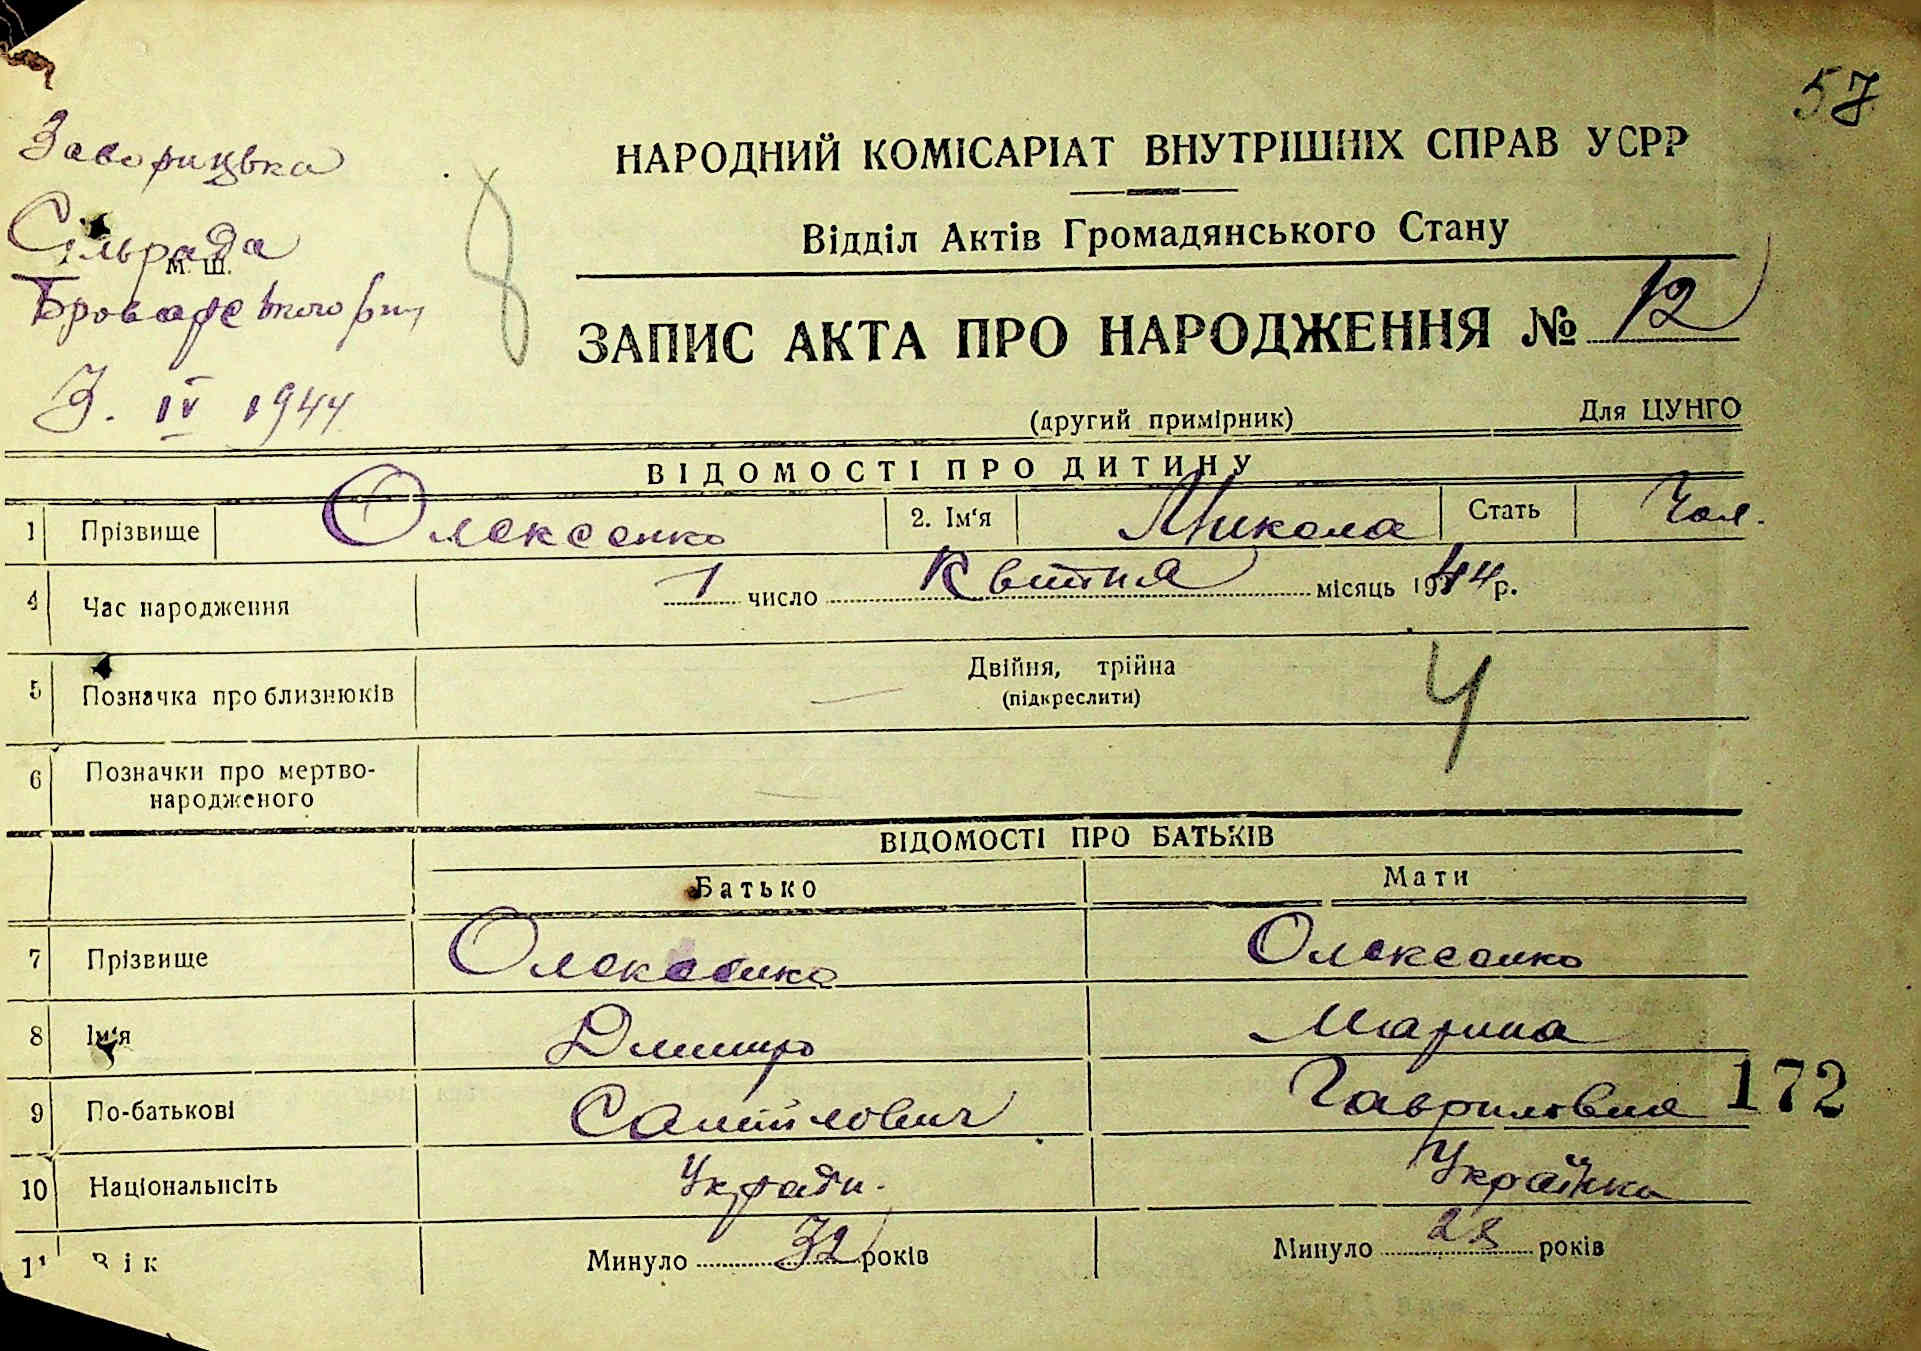 57
Заворицька
Сільрада
М. Ш.
Броварського р-ну
3. IV 1944
8
НАРОДНИЙ КОМІСАРІАТ ВНУТРІШНІХ СПРАВ УСРР
Відділ Актів Громадянського Стану
ЗАПИС АКТА ПРО НАРОДЖЕННЯ № 12
(другий примірник) Для ЦУНГО
ВІДОМОСТІ ПРО ДИТИНУ
1 Прізвище Олексєнко 2. Ім'я Микола Стать Чол.
4 Час народження 1 число Квітня місяць 1944 р.
5 Позначка про близнюків Двійня, трійна
(підкреслити)
4
6 Позначки про мертво-
народженого
ВІДОМОСТІ ПРО БАТЬКІВ
Батько Мати
7 Прізвище Олексєнко Олексєнко
8 Ім'я Дмитро Марина
9 По-батькові Самійлович Гавриловна 172
10 Національнсіть Україн. Українка
11 Вік Минуло 32 років Минуло 28 років